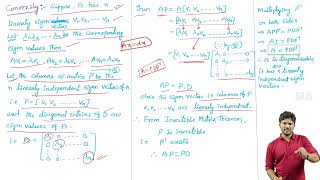 Conversely: Suppose A has n
linearly eigen vectors V₁, V₂, ... Vₙ
Let λ₁, λ₂, ... λₙ be the corresponding
eigen values then
AV₁ = λ₁V₁, AV₂ = λ₂V₂ ... AVₙ = λₙVₙ
Let the columns of matrix P be the
n linearly independent eigen vectors of A
i.e P = [V₁ V₂ ... Vₙ]
and the diagonal entries of D are
eigen values of A.
i.e D =
Ax = λx
Then AP = A[V₁ V₂ ... Vₙ]
A = PDP⁻¹
AP = P.D
since eigen vectors i.e columns of P
V₁ V₂ ... Vₙ are linearly independent.
∴ From Invertible Matrix Theorem,
P is invertible
i.e P⁻¹ exists
∴ AP = PD
Multiplying P⁻¹
on both sides
⇒ APP⁻¹ = PDP⁻¹
⇒ AI = PDP⁻¹
⇒ A = PDP⁻¹
∴ A is diagonalizable
n linearly independent
eigen vectors